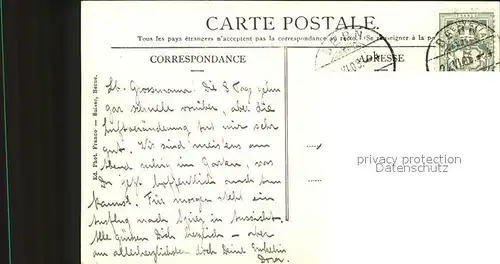 CARTE POSTALE.
Tous les pays étrangers n'acceptent pas la correspondance au recto. (Se renseigner à la po
CORRESPONDANCE
ADRESSE
BERN
BERN
Ed. Phot. Franco-Suisse, Berne.
Lb. Grossmama. Die 8 Tag gehn
gar schnelle vorüber, aber die
Luftveränderung tut mir sehr
gut. Wir sind meistens am
Abend ruhig im Garten, was
Du jetzt hoffentlich auch tun
kannst. Für morgen steht ein
Ausflug nach Spiez in Aussicht.
Alle grüssen Dich herzlich – aber
am allerherzlichsten doch Deine Enkelin
Dora.
privacy protection
watermarks